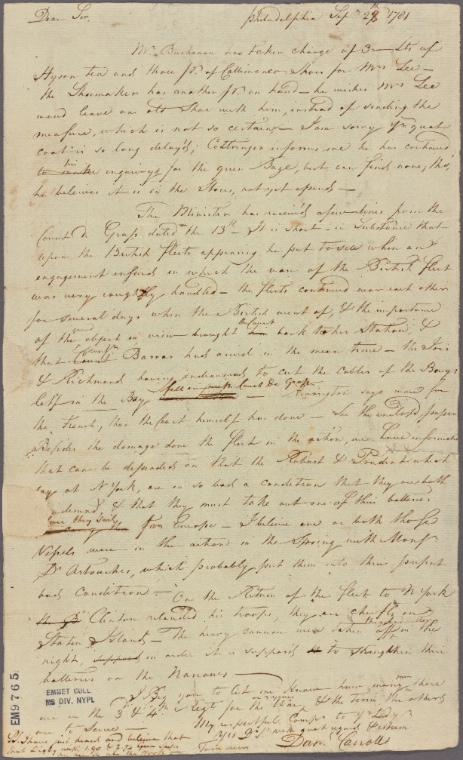 Dear Sir,
Philadelphia Sepr 28th 1781
Mr Buchanan has taken charge of 3 lbs of
Hyson tea and three pr of Callimancoe Shoes for Mrs Lee —
the Shoemaker has another pr on hand — he wishes Mrs Lee
would leave an old Shoe with him, instead of sending the
measure, which is not so certain — I am sorry yr great
coat is so long delay'd, Cottringer informs me he has continued
his enquirys for the green Bage, but can find none, tho
he believes it is in the Stores, not yet opened —
The Minister has received a few lines from the
Count de Grass dated the 13th — It is short — in Substance that
upon the British fleets appearing he put to sea when an
engagement ensued in which the van of the British fleet
was very roughly handled — the fleets continued near each other
for several days when the British went off, & the importance
of the object in view brought the Count back to her Station, &
that Barras had arrived in the mean time — the Iris
& Richmond having endeavoured to cut the cables of the Buoys
left in the Bay
the French, that the fleet himself has done —
Besides the damage done the fleet in the action, we have information
that can be depended on that the Robust & Prudent which
lay at N York, are in so bad a condition that they are both
& that they must take out one of their batteries
from Europe — I believe one or both those
Vessels were in the action in the Spring with Monsr
De Artouches, which probably put them into their present
bad Condition — On the Return of the fleet to N York
Clinton relanded his troops, they are chiefly on
Staten Island — The heavy cannon were taken off in the
night, in order it is supposed to strengthen their
batteries on the Narrows —
I Beg you to let me know how many there
are in the 3 & 4th Regts for the & the term the others
are to Serve — My respectful Compts to yr Lady
Yrs Dr Sir with great regard & esteem
Danl Carroll
EMMET COLL
MS DIV. NYPL
EM9765